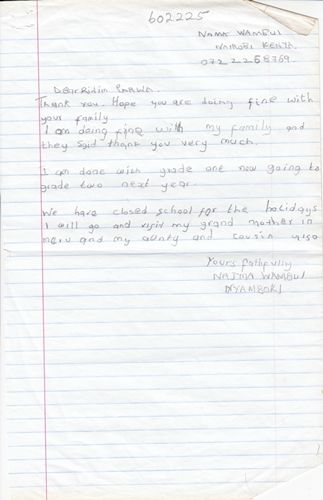 602225
NAMA WAMBUI
NAIROBI KENYA
0722268769.
Dear
Thank you. Hope you are doing fine with
your family
I am doing fine with my family and
they said thank you very much.
I am done with grade one now going to
grade two next year.
We have closed school for the holidays
I will go and my grand mother in
meru and my aunty and cousin also
Yours
NAIMA WAMBUI
NYAMBORI